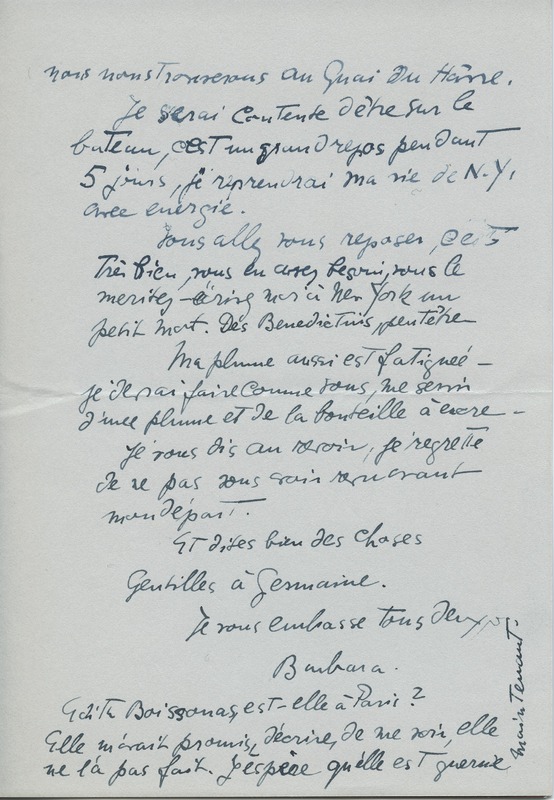 nous nous trouverons au Quai Du Hâvre.
Je serai contente d'être sur le
bateau, c'est un grand repos pendant
5 jours, je reprendrai ma vie de N.Y.
avec energie.
Vous allez vous reposer, c'est
Très bien, vous en avez besoin, vous le
meritez - écrivez moi à New York un
petit mot. Des Benedictins, peut être
Ma plume aussi est fatiguée -
je devrai faire comme vous, me servir
d'une plume et de la bouteille à encre -
Je vous dis au revoir, je regrette
de ne pas vous avoir revu avant
mon départ.
Et dites bien des choses
Gentilles à Germaine.
Je vous embrasse tous deux
Barbara.
Edith Boissonas, est-elle à Paris?
Elle m'avait promis, d'écrire, de me voir, elle
ne l'a pas fait. J'espère qu'elle est guerie
maintenant.